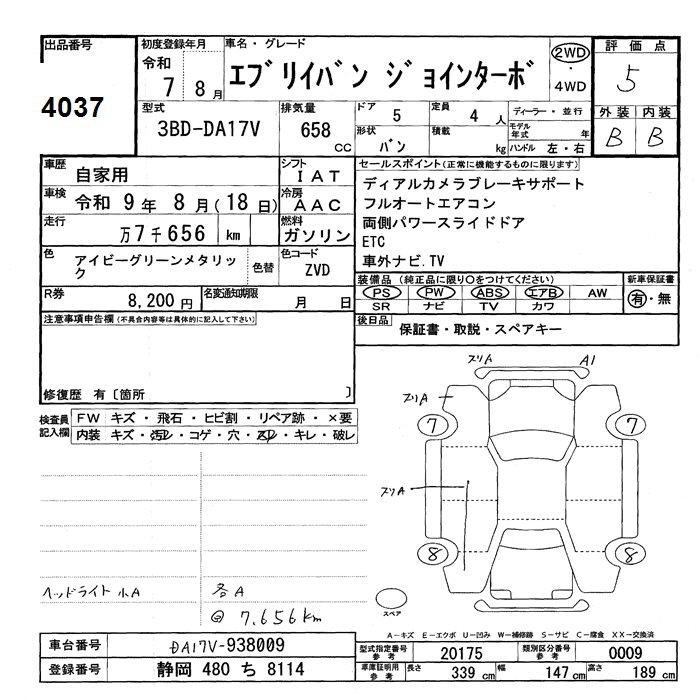 出品番号
4037
初度登録年月
令和
7 8月
車名・グレード
エブリイバン ジョインターボ
2WD
・
4WD
評価点
5
外装 内装
B B
型式
3BD-DA17V
排気量
658 CC
ドア 5
定員 4 人
ディーラー・並行
形状 バン
積載 kg
モデル年式 年
ハンドル 左・右
車歴 自家用
シフト IAT
車検 令和 9年 8月(18日)
冷房 AAC
走行 万7千656 km
燃料 ガソリン
色 アイビーグリーンメタリック
色替
色コード ZVD
R券 8,200円
名変通知期限 月 日
セールスポイント(正常に機能するものに限ります)
ディアルカメラブレーキサポート
フルオートエアコン
両側パワースライドドア
ETC
車外ナビ.TV
装備品 (純正品に限り○をつけてください)
PS PW ABS エアB AW
SR ナビ TV カワ
新車保証書
有・無
後日品 保証書・取説・スペアキー
注意事項申告欄(不具合内容等は具体的に記入して下さい)
修復歴 有〔箇所 〕
検査員記入欄
FW キズ・飛石・ヒビ割・リペア跡・×要
内装 キズ・汚れ・コゲ・穴・スレ・キレ・破レ
ヘッドライト小A
各A
@ 7.656km
スリA
A1
スリA
7 7
スリA
8 8
スペア
A-キズ E-エクボ U-凹み W-補修跡 S-サビ C-腐食 XX-交換済
車台番号 DA17V-938009
登録番号 静岡 480 ち 8114
型式指定番号 参考 20175
類別区分番号 参考 0009
車庫証明用 参考 長さ 339 cm 幅 147 cm 高さ 189 cm